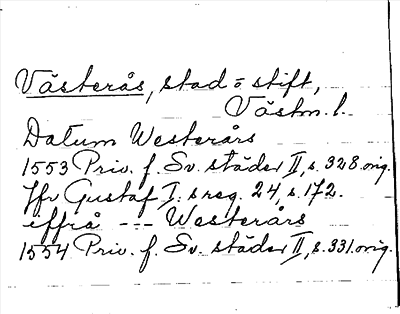 Västerås, stad o stift,
Västm. l.
Datum Westerårs
1553 Priv. f. Sv. städer II, s. 328. orig.
Jfr Gustaf I:s reg. 24, s. 172.
iffrå --- Westerårs
1554 Priv. f. Sv. städer II, s. 331. orig.